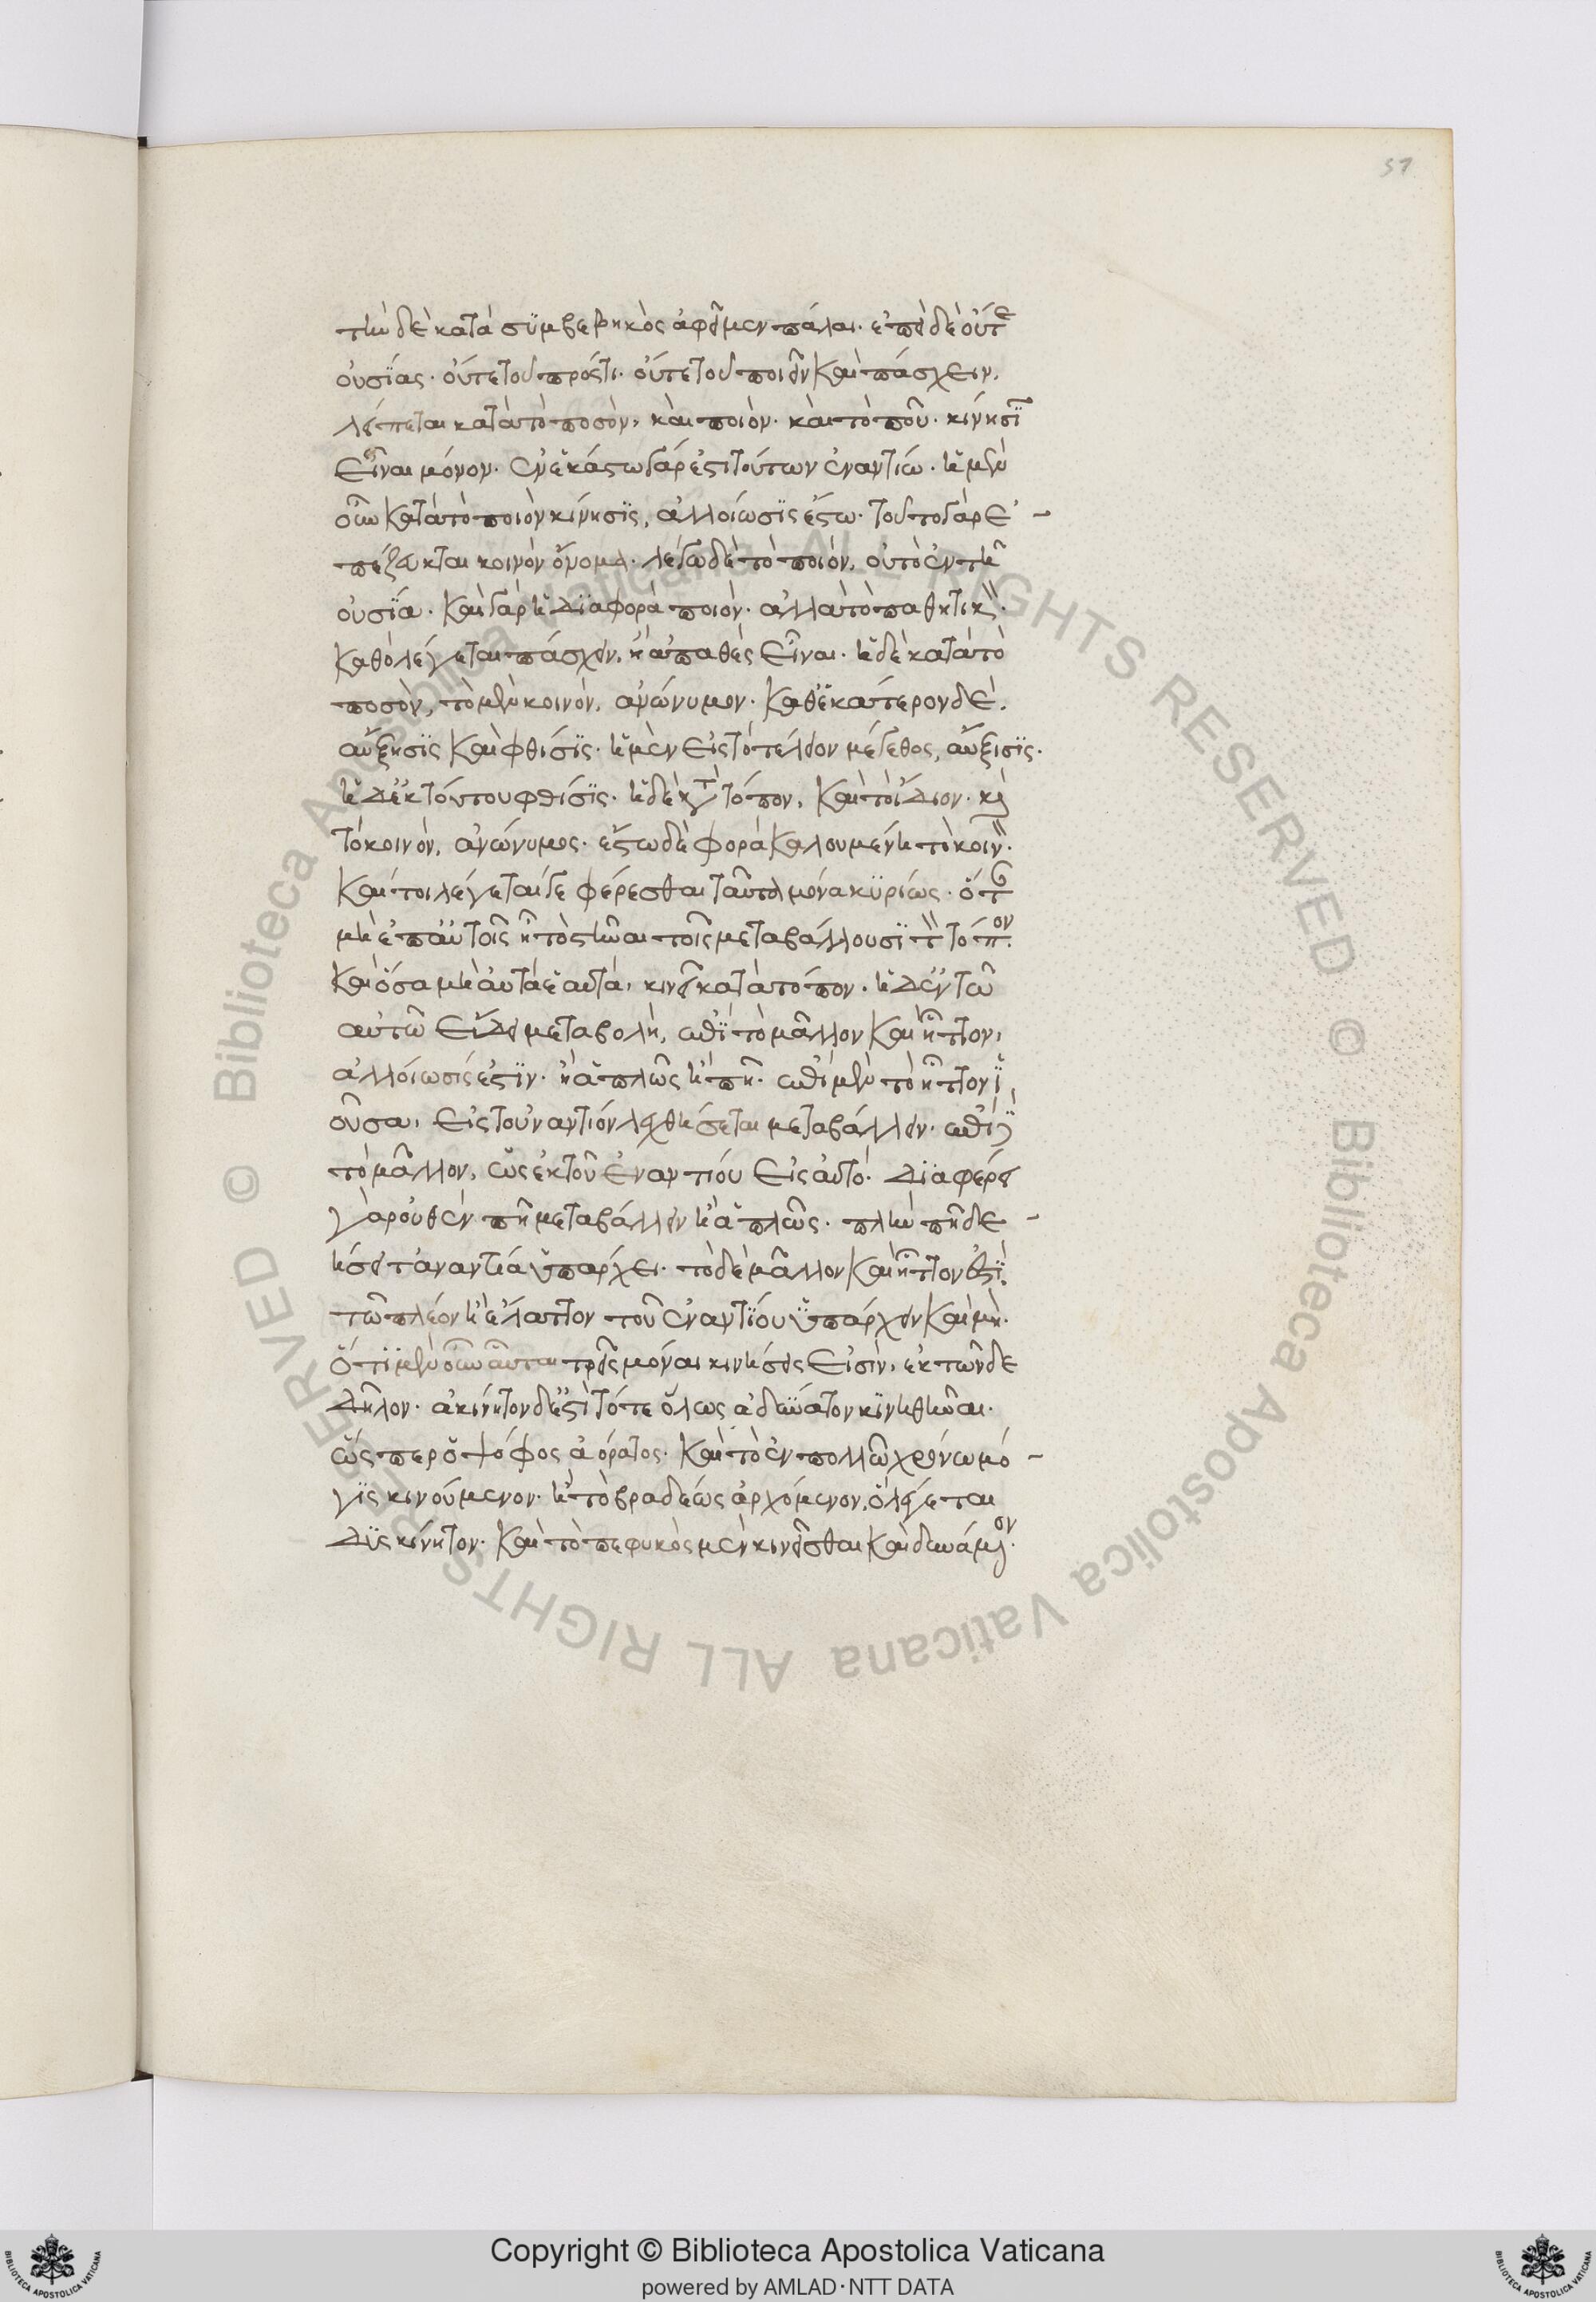 51
τὴν δὲ κατὰ συμβεβηκὸς ἀφεῖμεν πάλαι. ἐπεὶ δὲ οὔτε
οὐσίας. οὔτε τοῦ πρός τι. οὔτε τοῦ ποιεῖν καὶ πάσχειν.
λείπεται κατὰ τὸ ποσὸν, καὶ ποιὸν. καὶ τὸ ποῦ. κίνησϊν
εἶναι μόνον. ἐν ἑκάστω γάρ ἐστι τούτων ἐναντίω. ἡ μὲν
οὖν κατὰ τὸ ποιὸν κίνησϊς, ἀλλοίωσϊς ἔστω. τοῦτο γὰρ ἐ-
πέζευκται κοινὸν ὄνομα. λέγω δὲ τὸ ποιόν, οὐ τὸ ἐν τῆ
οὐσΐα. καὶ γὰρ ἡ δϊαφορὰ ποιόν. ἀλλὰ τὸ παθητικὸν.
καθὸ λέγεται πάσχειν, ἢ ἀπαθὲς εἶναι. ἡ δὲ κατὰ τὸ
ποσὸν, τὸ μὲν κοινόν, ἀνώνυμον. καθ' ἑκάτερον δὲ.
αὔξησϊς καὶ φθίσϊς. ἡ μὲν εἰς τὸ τέλειον μέγεθος, αὔξισϊς.
ἡ δ' ἐκ τούτου φθίσϊς. ἡ δὲ κατὰ τόπον, καὶ τὸ ἴδιον. καὶ
τὸ κοινὸν, ἀνώνυμος. ἔστω δὲ φορὰ καλουμένη τὸ κοινὸν.
καί τοι λέγεταί γε φέρεσθαι ταῦτα μόνα κϋρίως. ὅταν
μὴ ἐπ' αὐτοῖς ἦ τὸ στῆναι τοῖς μεταβάλλουσϊ τὸν τόπον.
καὶ ὅσα μὴ αὐτὰ ἑαυτὰ, κινεῖ κατὰ τόπον. ἡ δ' ἐν τῶ
αὐτῶ εἴδει μεταβολὴ, ἐπὶ τὸ μᾶλλον καὶ ἧττον,
ἀλλοίωσίς ἐστϊν. ἢ ἁπλῶς ἢ πῆ. ἐπὶ μὲν τὸ ἧττον ϊ
οὖσα, εἰς τοὐναντίον λεχθήσεται μεταβάλλειν. ἐπὶ δὲ
τὸ μᾶλλον, ὡς ἐκ τοῦ ἐναντίου εἰς αὐτό. δϊαφέρει
γὰρ οὐθὲν πῆ μεταβάλλειν ἢ ἁπλῶς. πλὴν πῆ δε-
ήσει τἀναντία ὑπάρχει. τὸ δὲ μᾶλλον καὶ ἧττον ἐστϊ.
τῶ πλέον ἢ ἔλαττον τοῦ ἐναντΐου ὑπάρχειν καὶ μὴ.
ὅτι μὲν οὖν αὗται τρεῖς μόναι κινήσεις εἰσὶν, ἐκ τῶνδε
δῆλον. ἀκίνητον δέ ἐστι τό τε ὅλως ἀδύνατον κϊνηθῆναι.
ὥσπερ ὁ ψόφος ἀόρατος. καὶ τὸ ἐν πολλῶ χρόνω μό-
γϊς κινούμενον. ἢ τὸ βραδέως ἀρχόμενον, ὃ λέγεται
δϋσκίνητον. καὶ τὸ πεφυκὸς μὲν κινεῖσθαι καὶ δυνάμενον.
Copyright © Biblioteca Apostolica Vaticana
powered by AMLAD·NTT DATA
© Biblioteca Apostolica Vaticana ALL RIGHTS RESERVED © Biblioteca Apostolica Vaticana ALL RIGHTS RESERVED